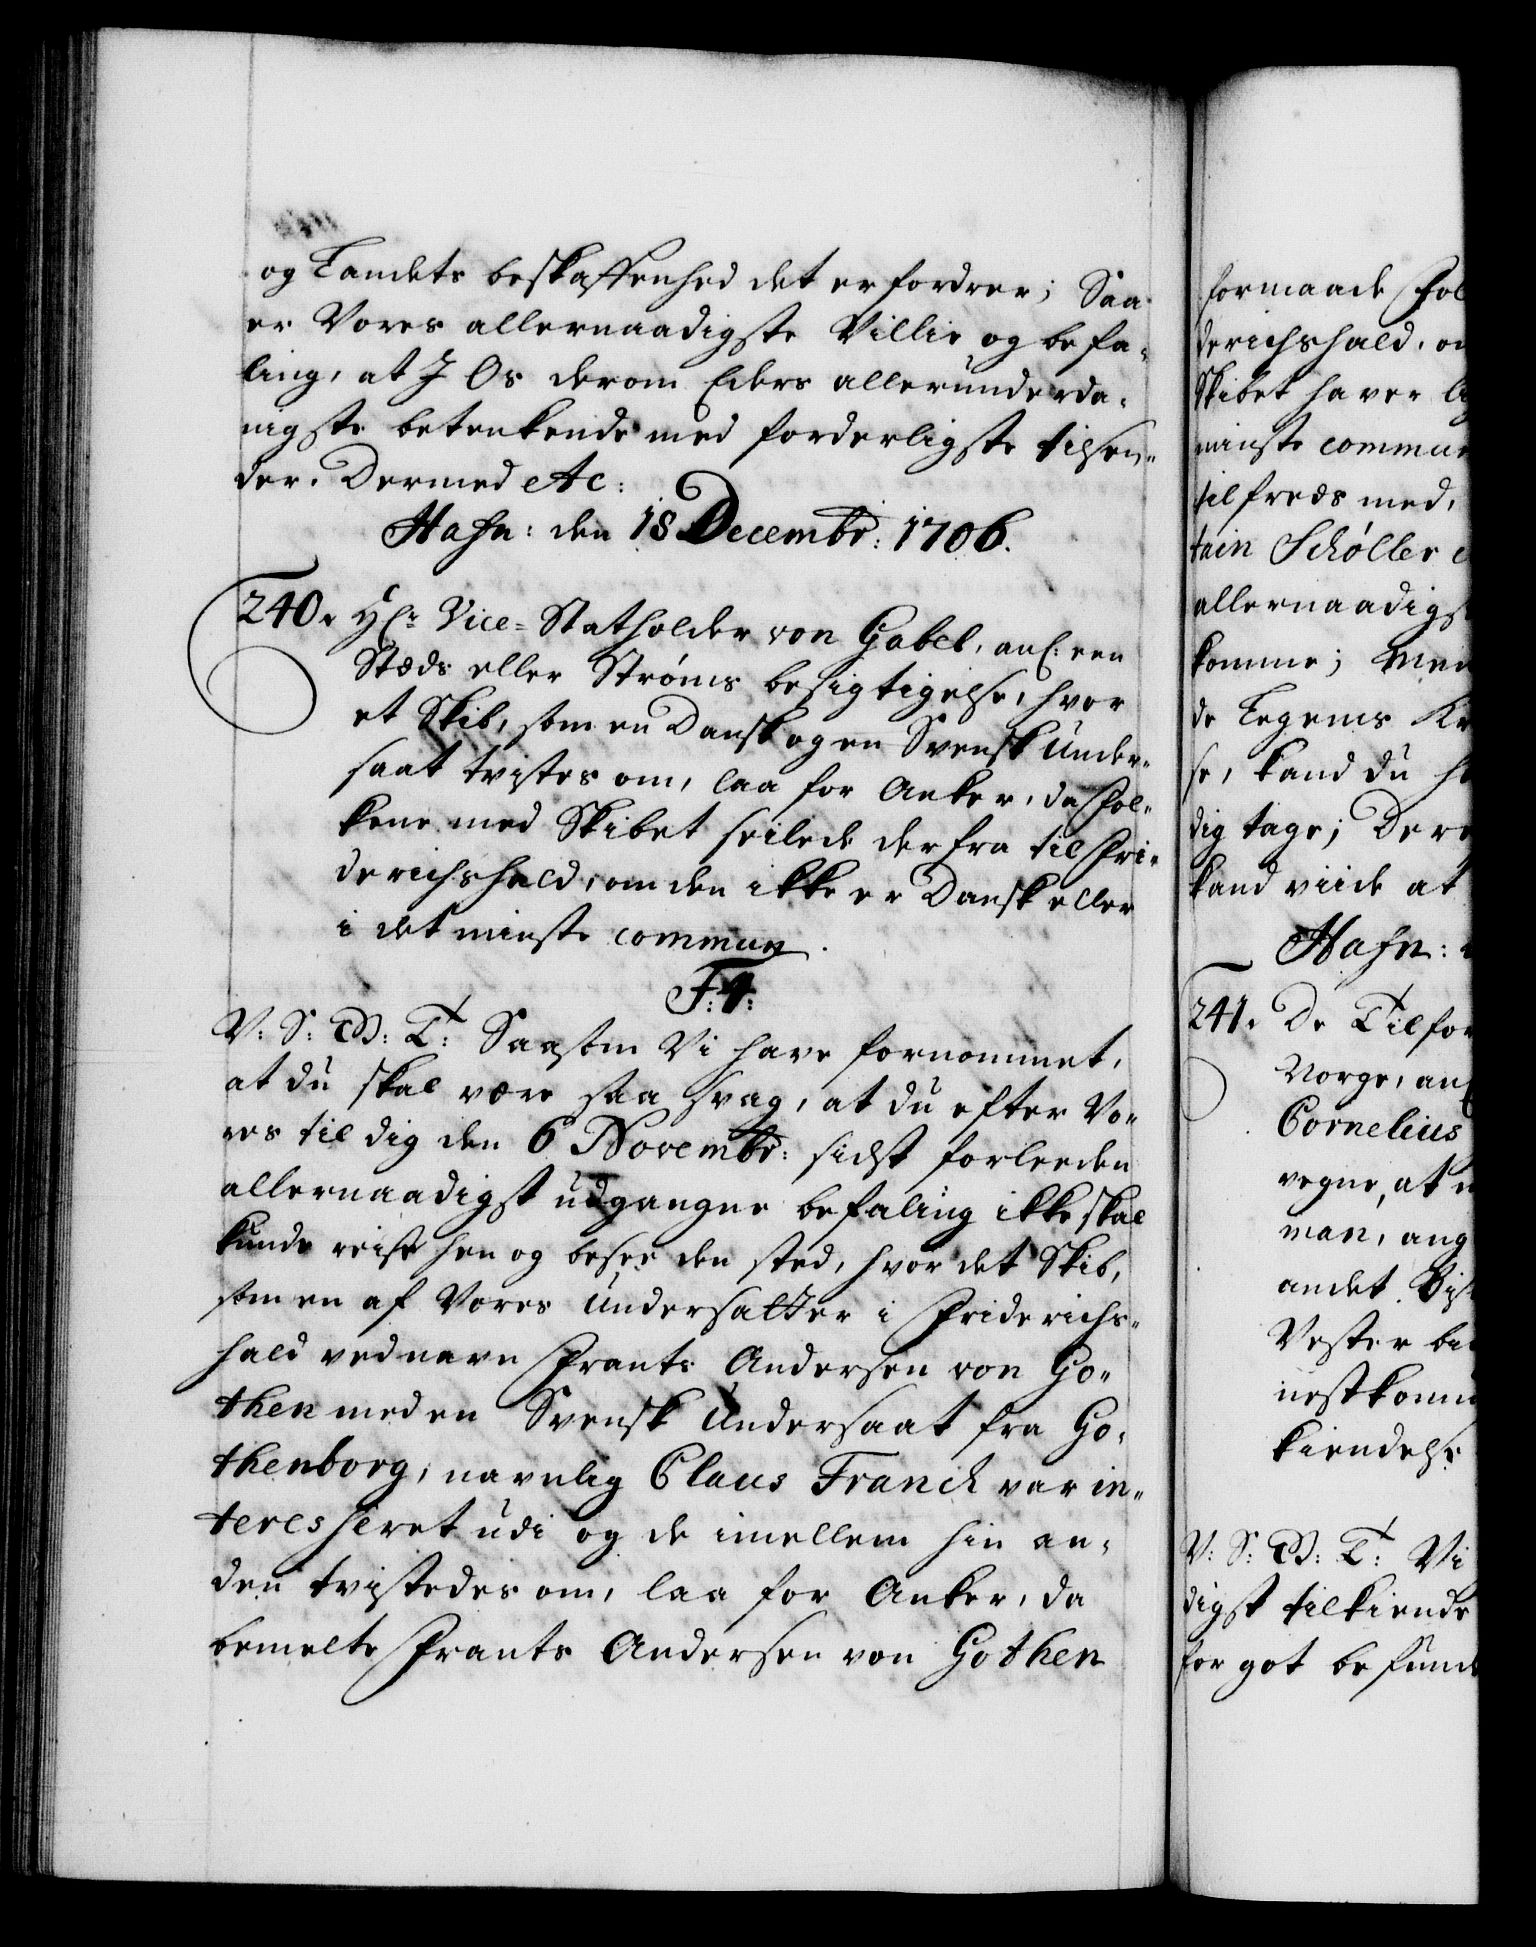 og Landets beskaffenhed det erfordrer; Saa
er Vores allernaadigste Villie og befa-
ling, at I Os derom Eders allerunderda-
nigste betenkende med forderligste tilsen-
der. Dermed etc:
Hafn: den 18 Decembr: 1706.
240. Hr: Vice-Statholder von Gabel, anl: een
Stæds eller Strøms besigtigelse, hvor
et Skib, som en Dansk og en Svensk Under-
saat tvistes om, laa for Anker, da Fol-
kene med Skibet seilede derfra til Fri-
derichshald, om den ikke er Dansk eller
i det minste commun.
F: 4:
V: S: G: T: Saasom Vi have fornommet,
at du skal være saa svag, at du efter Vo-
res til dig den 6 Novembr: sidst forleeden
allernaadigst udgangne befaling ikke skal
kunde reise hen og besee den sted, hvor det Skib,
som en af Vores Undersatter i Friderichs-
hald ved navn Frants Andersen von Go-
then med en Svensk Undersaat fra Go-
thenborg, navnlig Claus Franck var in-
teresseret udi og de imellem hin an-
den tvistedes om, laa for Anker, da
bemelte Frants Andersen von Gothen
formaade Fol
derichshald, om
Skibet haver
minste commun
tilfreds med,
tain Schøller
allernaadigst
komme; Men
de Legems
se, kand du
dig tage; Der
kand viide at
Hafn:
241. De Tilfor
Norge, anl
Cornelius
vegne, at
man, ang
andet
Vester
nestkomm
kiendelse
V: S: G: T: Vi
digst tilkiende
for got befund